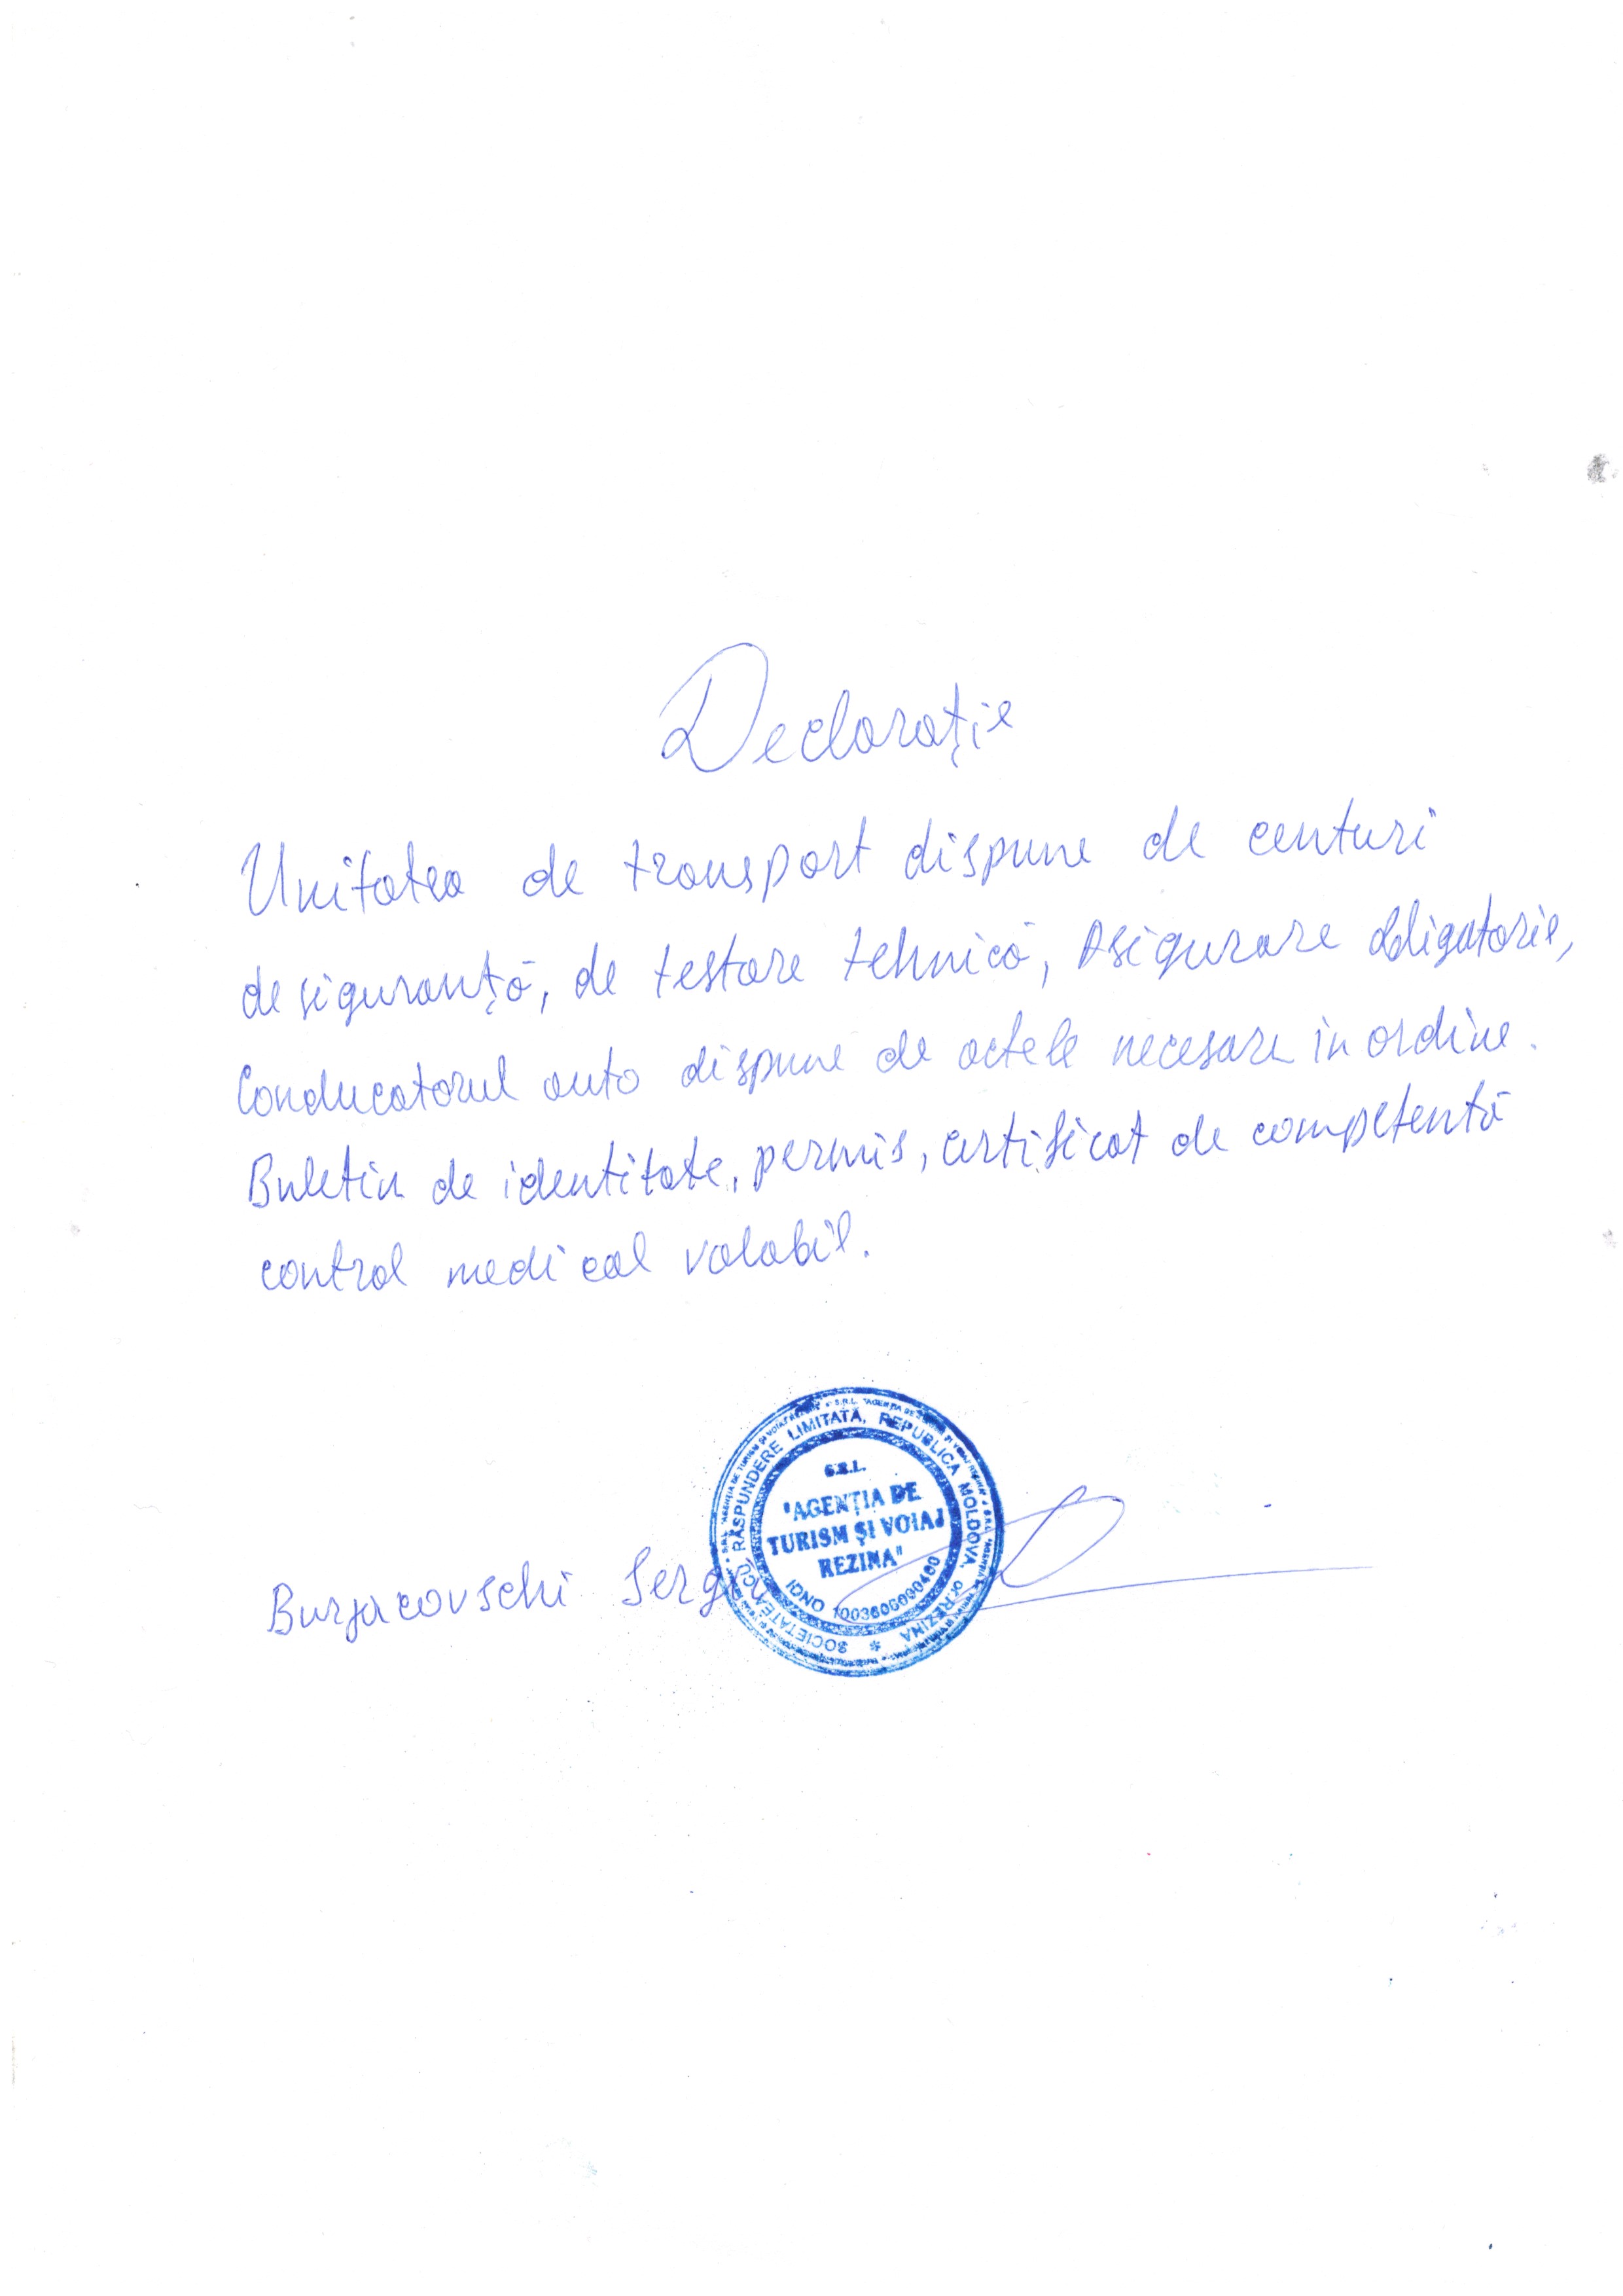 Declarație
Unitatea de transport dispune de centuri
de siguranță, de testare tehnică, Asigurare obligatorie,
Conducatorul auto dispune de actele necesare in ordine.
Buletin de identitate, permis, certificat de competentă
control medical valabil.
S.R.L.
"AGENȚIA DE
TURISM ȘI VOIAJ
REZINA"
SOCIETATEA CU RĂSPUNDERE LIMITATĂ, REPUBLICA MOLDOVA, or. REZINA *
IDNO
Sergi